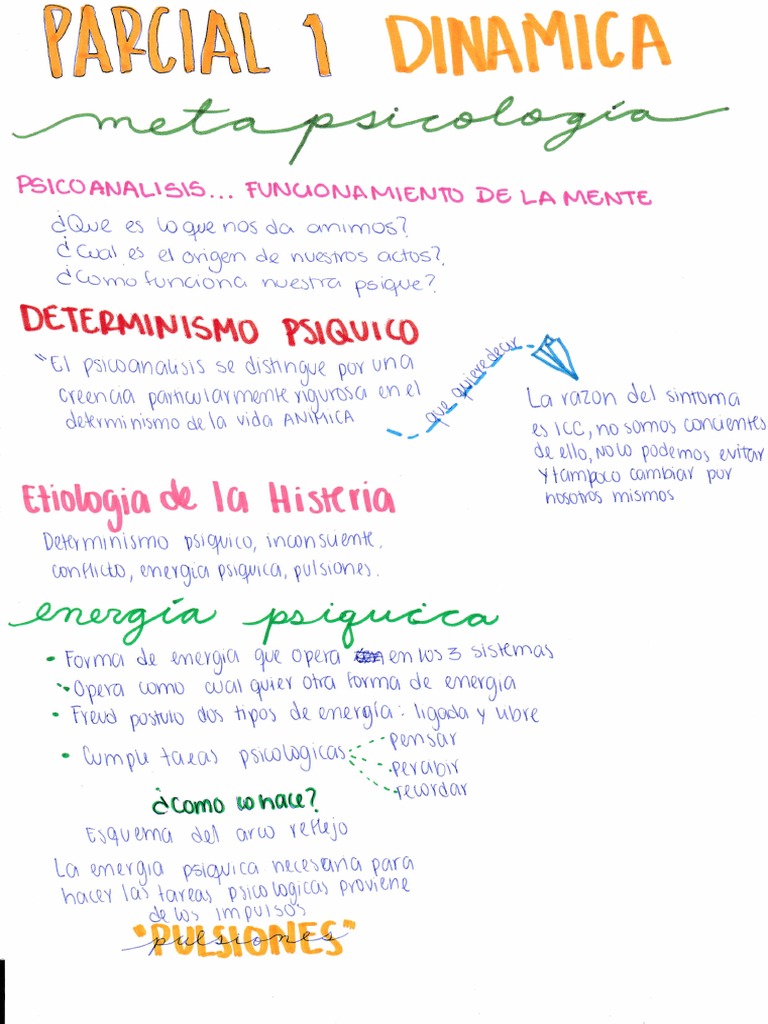 PARCIAL 1 DINAMICA
metapsicología
PSICOANALISIS... FUNCIONAMIENTO DE LA MENTE
¿Que es lo que nos da animos?
¿Cual es el origen de nuestros actos?
¿Como funciona nuestra psique?
DETERMINISMO PSIQUICO
"El psicoanalisis se distingue por una
creencia particularmente rigurosa en el
determinismo de la vida ANIMICA
que quiere decir
La razon del sintoma
es ICC, no somos concientes
de ello, NO lo podemos evitar
y tampoco cambiar por
nosotros mismos
Etiologia de la Histeria
Determinismo psiquico, inconsciente,
conflicto, energia psiquica, pulsiones.
energía psiquica
• Forma de energia que opera en los 3 sistemas
• Opera como cualquier otra forma de energia
• Freud postulo dos tipos de energía: ligada y libre
• Cumple tareas psicologicas
pensar
percibir
recordar
¿Como lo hace?
Esquema del arco reflejo
La energia psiquica necesaria para
hacer las tareas psicologicas proviene
de los impulsos
"PULSIONES"
pulsiones